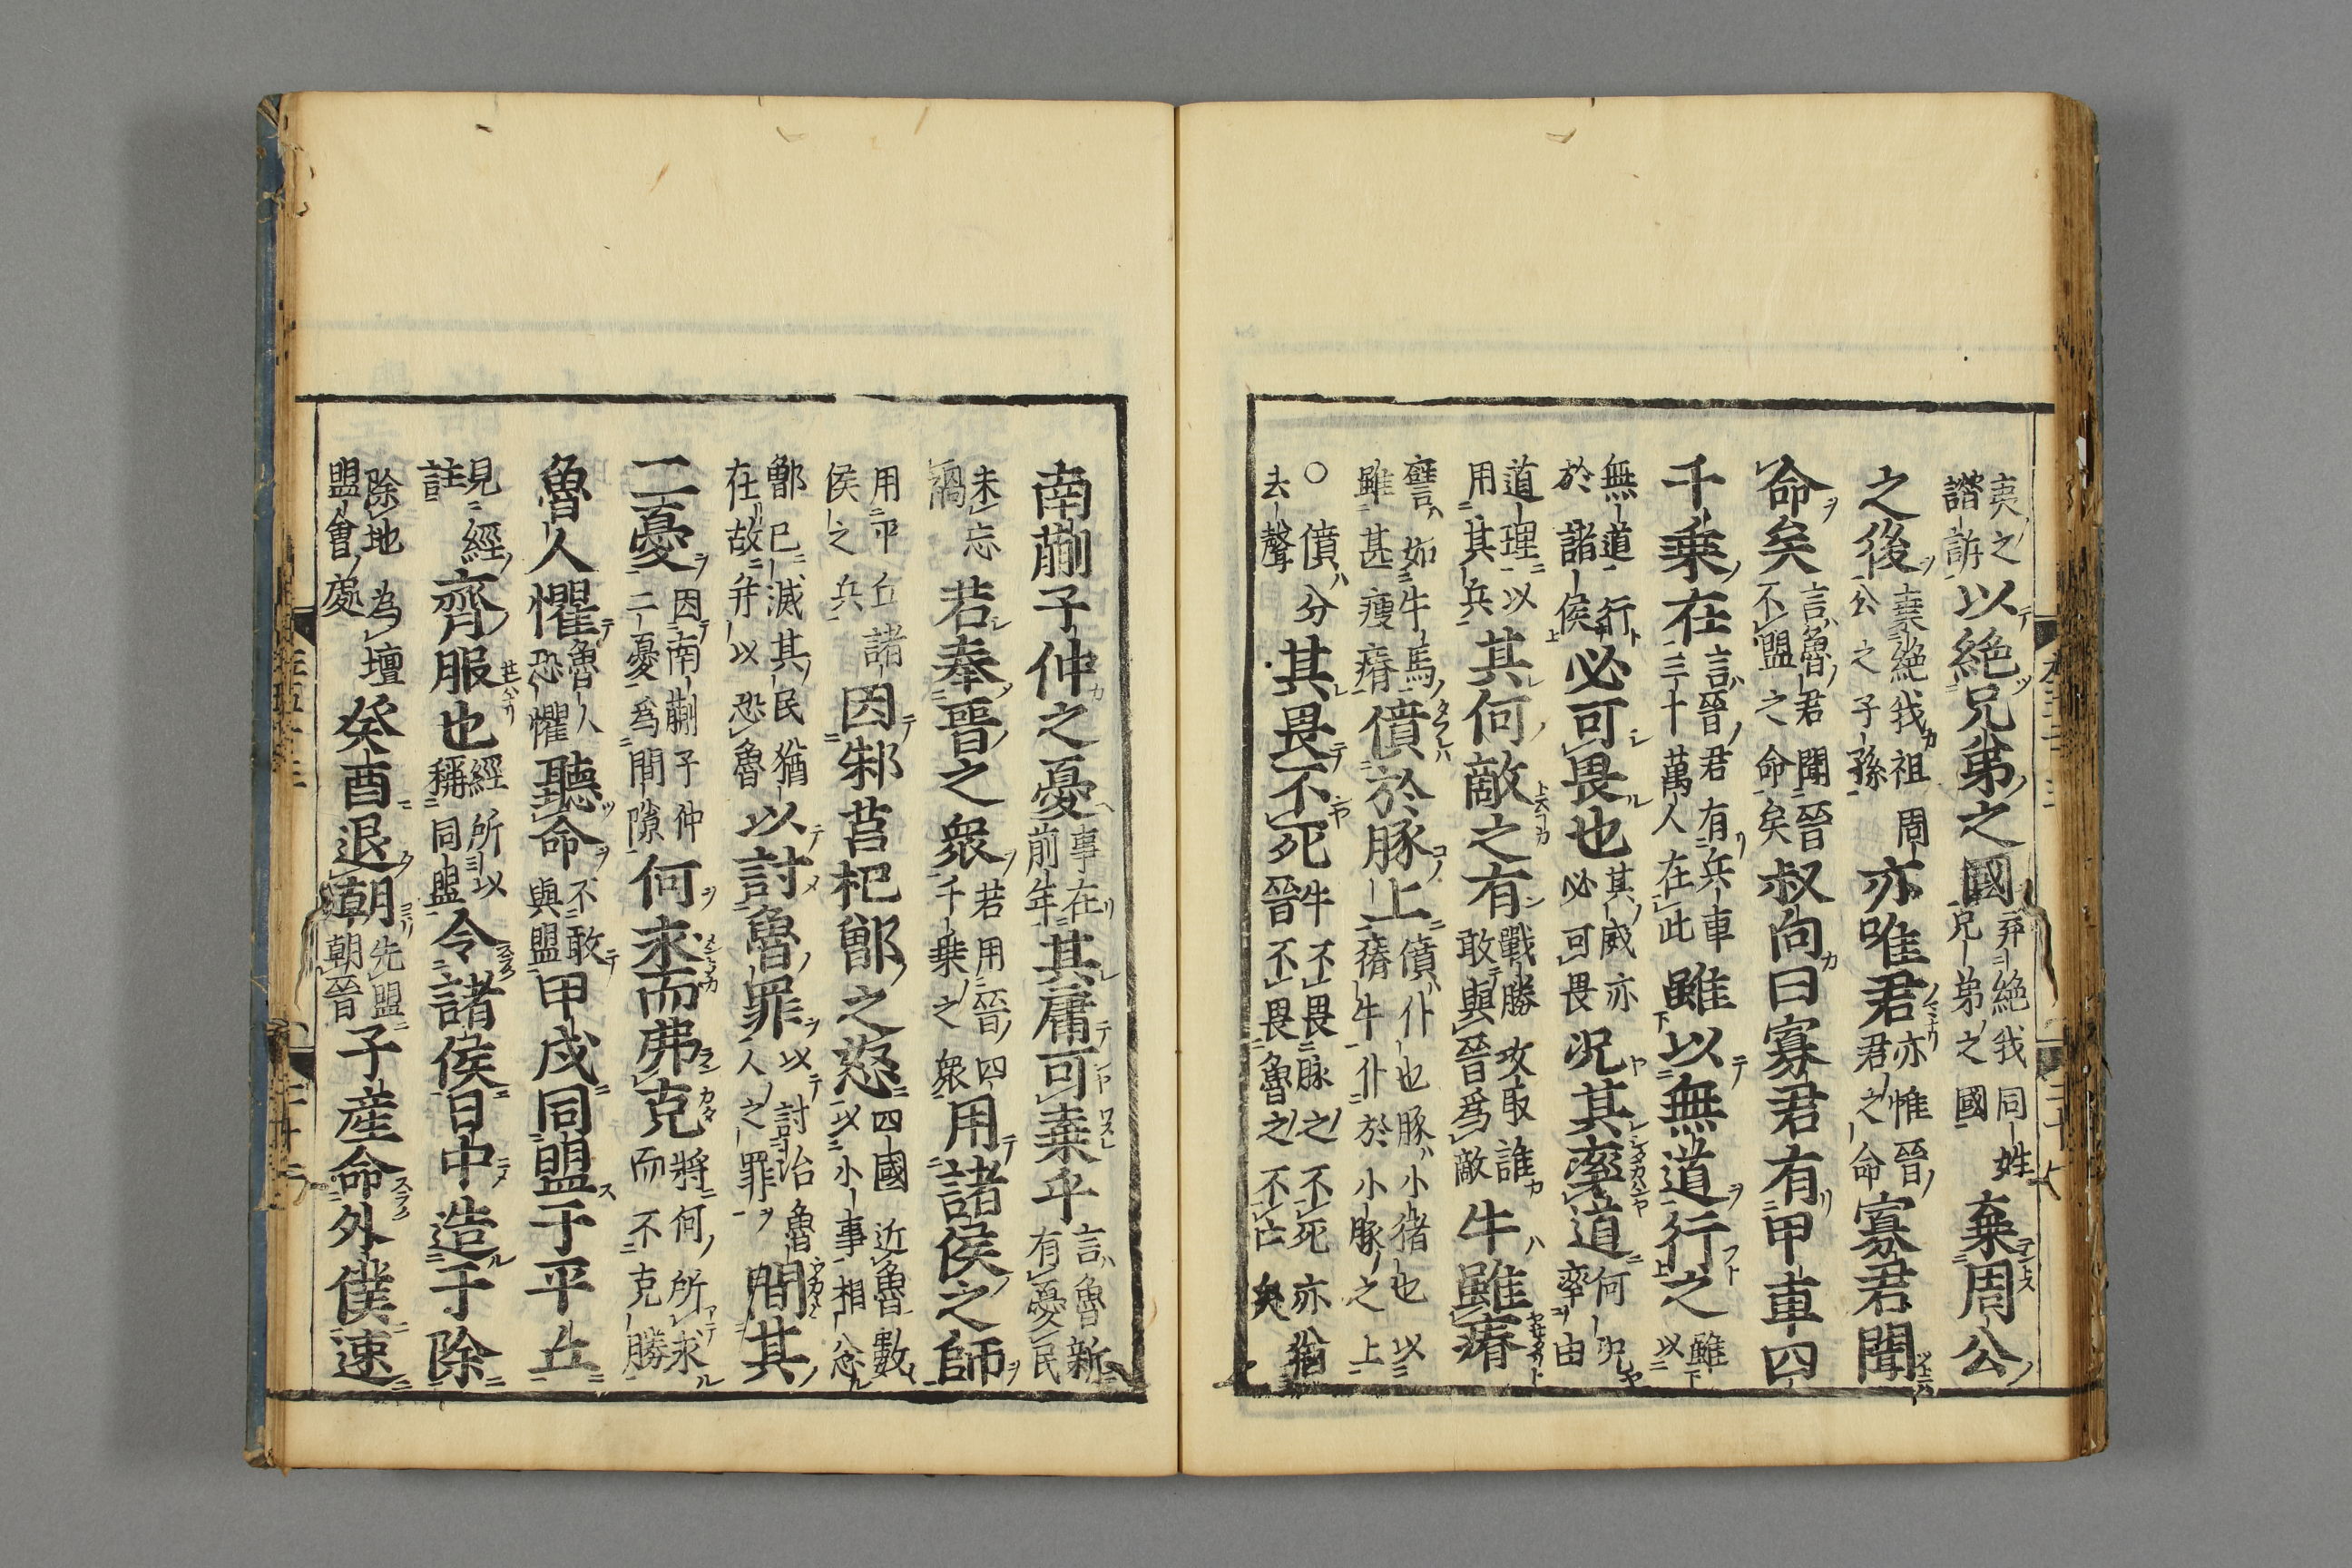 夷之譖訴以絶兄弟之國弃絶我同姓兄弟之國棄周公
之後棄絶我祖周公之子孫亦唯君亦惟晉君之命寡君聞
命矣言魯君聞晉不盟之命矣叔向曰寡君有甲車四
千乗在言晉君有兵車三十萬人在此雖以無道行之雖以
無道行於諸侯必可畏也其威亦必可畏況其率道何況率由
道理以用其兵其何敵之有戰勝攻取誰敢與晉爲敵牛雖瘠
譬如牛馬雖甚痩瘠僨於豚上僨仆也豚小猪也以瘠牛仆於小豚之上
○僨分去聲其畏不死牛不畏豚之不死亦猶晉不畏魯之不亡矣
南蒯子仲之憂事在前年其庸可棄乎言魯新有憂民
未忘禍若奉晉之衆若用晉四千乗之衆用諸侯之師
用平丘諸侯之兵因邾莒杞鄫之怒四國近魯數以小事相忿
鄫已滅其民猶在故并以恐魯以討魯罪以討治魯人之罪間其
二憂因南蒯子仲二憂爲間隙何求而弗克將何所求而不克勝
魯人懼魯人恐懼聽命不敢與盟甲戌同盟于平丘
見經註齊服也經所以稱同盟令諸侯日中造于除
除地為壇盟會處癸酉退朝先盟朝晉子産命外僕速